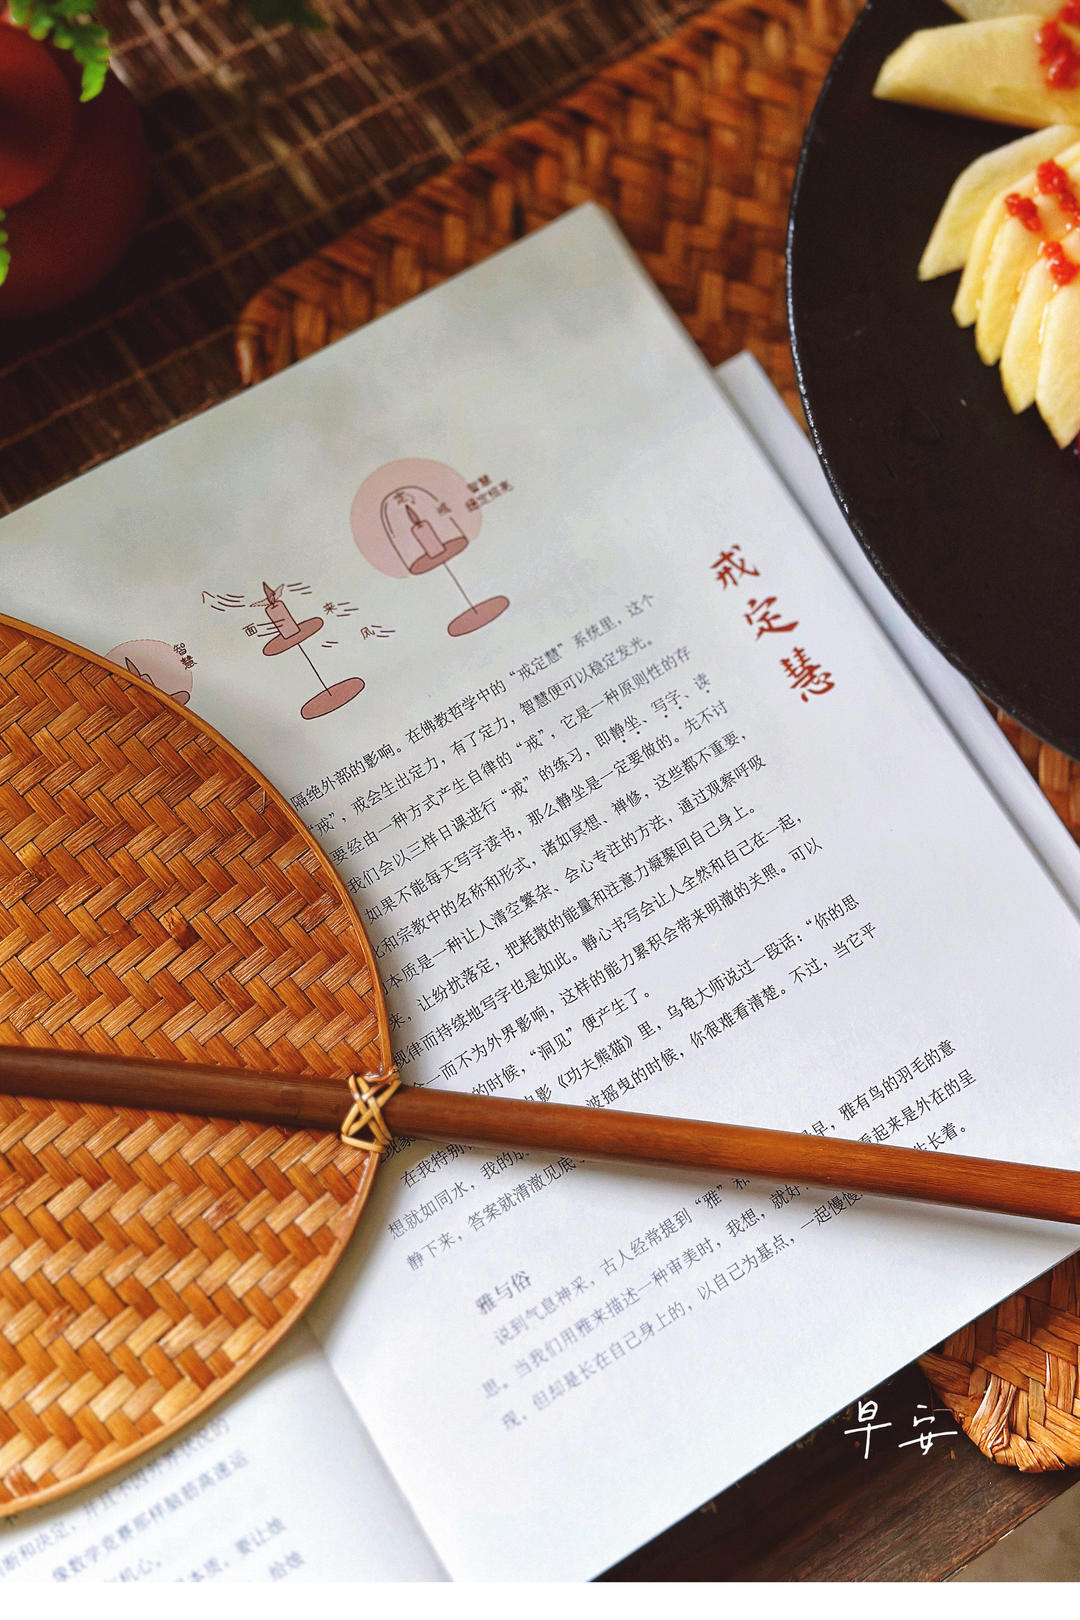 智慧
八
面
来
风
定
戒
智慧
稳定恒亮
戒定慧
隔绝外部的影响。在佛教哲学中的“戒定慧”系统里，这个
“戒”，戒会生出定力，有了定力，智慧便可以稳定发光。
要经由一种方式产生自律的“戒”，它是一种原则性的存
我们会以三样日课进行“戒”的练习，即静坐、写字、读
如果不能每天写字读书，那么静坐是一定要做的。先不讨
化和宗教中的名称和形式，诸如冥想、禅修，这些都不重要，
本质是一种让人清空繁杂、会心专注的方法，通过观察呼吸
来，让纷扰落定，把耗散的能量和注意力凝聚回自己身上。
规律而持续地写字也是如此。静心书写会让人全然和自己在一起，
合一而不为外界影响，这样的能力累积会带来明澈的关照。可以
的时候，“洞见”便产生了。
在我特别 影《功夫熊猫》里，乌龟大师说过一段话：“你的思
想就如同水，我的 波摇曳的时候，你很难看清楚。不过，当它平
静下来，答案就清澈见底
雅与俗
说到气息神采，古人经常提到“雅”和 早，雅有鸟的羽毛的意
思。当我们用雅来描述一种审美时，我想，就好 看起来是外在的呈
现，但却是长在自己身上的，以自己为基点，一起慢慢 生长着。
断和决定，并且
像数学竞赛那样脑筋高速运
机心。
本质，要让烛
给烛
早安